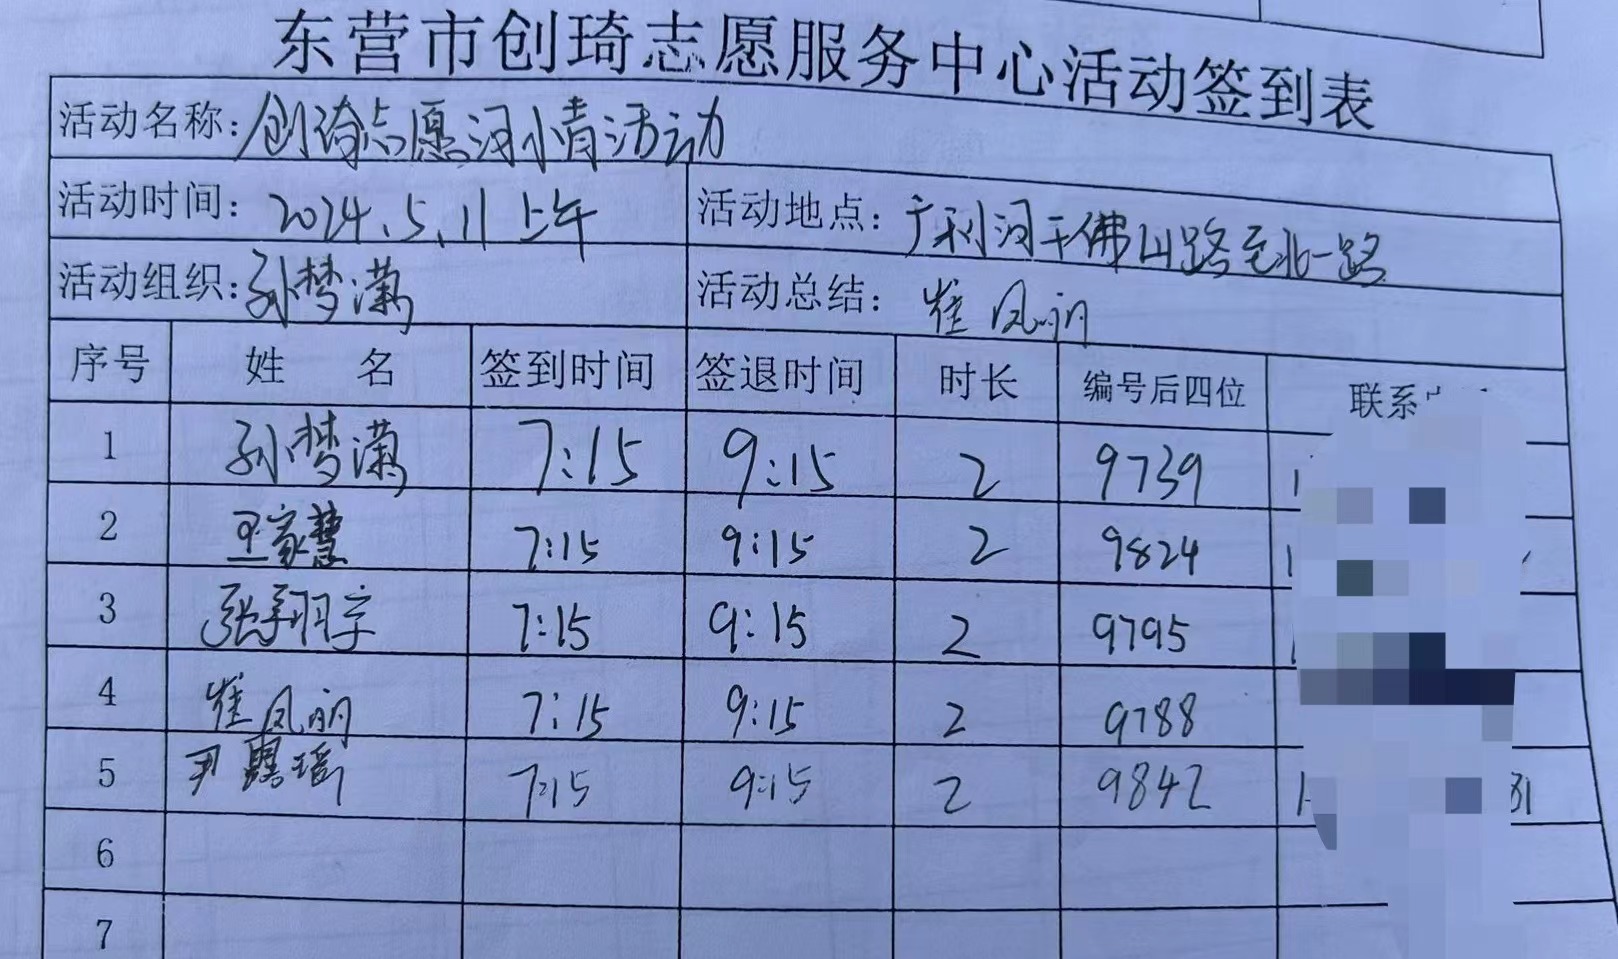 东营市创琦志愿服务中心活动签到表
活动名称：创琦志愿河小青活动
活动时间：2024.5.11 上午 活动地点：广利河千佛山路至北一路
活动组织：孙梦潇 活动总结：崔凤丽
序号 姓 名 签到时间 签退时间 时长 编号后四位 联系
1 孙梦潇 7:15 9:15 2 9739
2 王家慧 7:15 9:15 2 9824
3 张翔宇 7:15 9:15 2 9795
4 崔凤丽 7:15 9:15 2 9788
5 尹瑶 7:15 9:15 2 9842
6
7